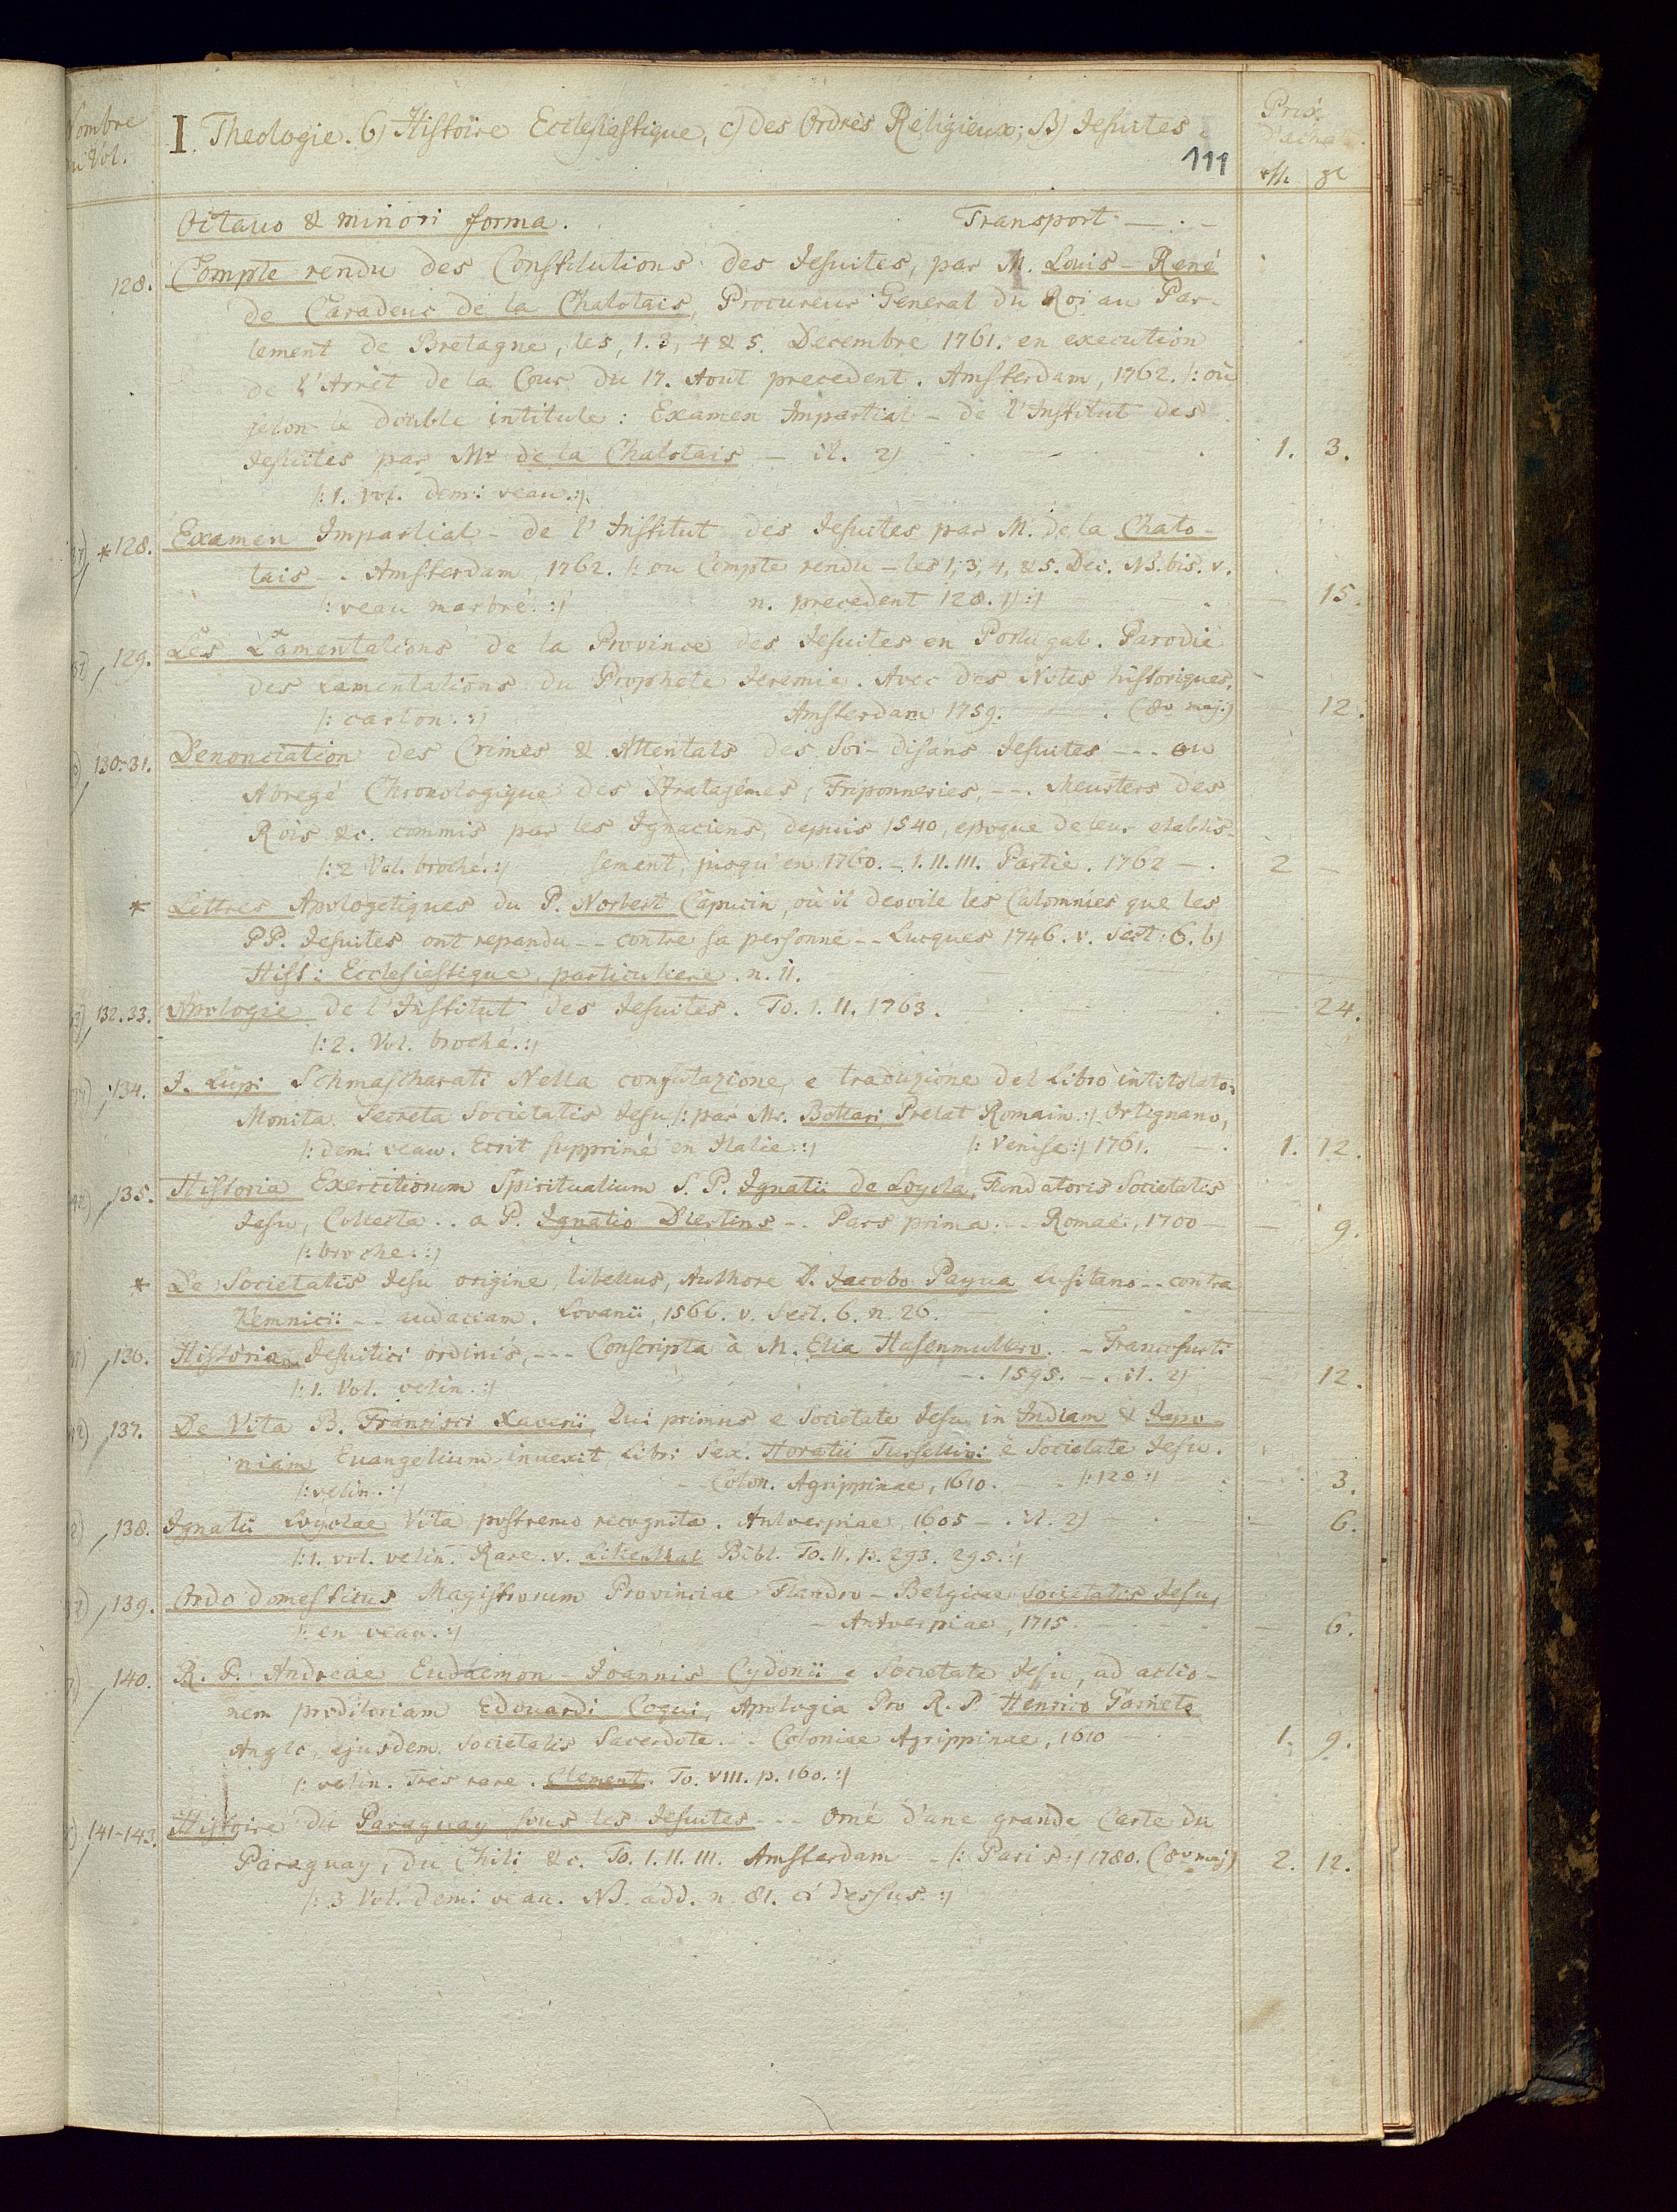 Nombre
du Vol.
I. Theologie. 6) Histoire Ecclesiastique, c) des Ordres Religieux; B) Jesuites.
Prix
d'achat.
111
rth gl
Octavo & minori forma. Transport — . —
128. Compte rendu des Constitutions des Jesuites, par M. Louis-René
de Caradeuc de la Chalotais, Procureur General du Roi au Par-
lement de Bretagne, les, 1. 3, 4 & 5. Decembre 1761. en execution
de l'Arrêt de la Cour du 17. Aout precedent. Amsterdam, 1762. /: où
selon le double intitule: Examen Impartial - de l'Institut des
Jesuites par Mr. de la Chalotais - it. 2) 1. 3.
/: 1. vol. demi veau. :/.
*128. Examen Impartial - de l'Institut des Jesuites par M. de la Chalo-
tais -. Amsterdam, 1762. /: ou Compte rendu - les 1, 3, 4, & 5. Dec. NB. bis. v.
/: veau marbré. :/ n. precedent 128. 1) :/ — 15.
129. Les Lamentations de la Province des Jesuites en Portugal. Parodie
des Lamentations du Prophete Jeremie. Avec des Notes historiques.
/: carton. :/ Amsterdam 1759. (8o maj.) — 12.
130-31. Denonciation des Crimes & Attentats des Soi-disans Jesuites --- ou
Abregé Chronologique des Stratagèmes, Friponneries, --. Meurters des
Rois &c. commis par les Ignaciens, depuis 1540, epoque de leur etablis-
/: 2 Vol. broché. :/ sement, jusqu'en 1760. - 1. II. III. Partie. 1762 - . 2 —
* Lettres Apologetiques du P. Norbert Capucin, où il devoile les Calomnies que les
PP. Jesuites ont repandu -- contre sa personne -- Lucques 1746. v. Sect: 6. b)
Hist: Ecclesiastique. particuliere. n. 11.
132.33. Apologie de l'Institut des Jesuites. To. 1. II. 1763. — 24.
/: 2. Vol. broché. :/
134. J. Lupi Schmascharati Nella confutazione, e traduzione del Libro intitolato:
Monita Secreta Societatis Jesu /: par Mr. Bottari Prelat Romain :/. Ortignano,
/: demi veau. Ecrit supprimé en Italie :/ /: Venise :/ 1761. 1. 12.
135. Historia Exercitiorum Spiritualium S. P. Ignatii de Loyola, Fundatoris Societatis
Jesu, Collecta .. a P. Ignatio Diertins -. Pars prima. -. Romae, 1700 — 9.
/: broche. :/
* De Societatis Jesu origine, libellus, Authore D. Jacobo Payua Lusitano -- contra
Kemnicii -- audaciam. Lovanii, 1566. v. Sect. 6. n. 26.
136. Historia Jesuitici ordinis, --- Conscripta à M. Elia Hasenmullero. - Francofurti
/: 1. Vol. velin. :/ -. 1595. -. it. 2) — 12.
137. De Vita B. Francisci Xaverii, Qui primus e Societate Jesu in Indiam & Japo-
niam Euangelium inuexit, Libri Sex. Horatii Tursellini è Societate Jesu.
/: velin. :/ - Colon. Agrippinae, 1610. /: 12o :/ — 3.
138. Ignatii Loyolae Vita postremo recognita. Antverpiae, 1605 -. it. 2) — 6.
/: 1. vol. velin. Rare. v. Lilienthal Bibl. To. II. p. 293. 295. :/
139. Ordo domesticus Magistrorum Provinciae Flandro-Belgicae Societatis Jesu,
/: en veau. :/ - Antverpiae, 1715. — 6.
140. R. P. Andreae Eudaemon-Joannis Cydonii e Societate Jesu, ad actio-
nem proditoriam Edouardi Coqui, Apologia Pro R. P. Henrico Garneto
Anglo, ejusdem Societatis Sacerdote. -. Coloniae Agrippinae, 1610 1. 9.
/: velin. Très rare. Clement. To. VIII. p. 160. :/
141-143. Histoire du Paraguay sous les Jesuites --- Orné d'une grande Carte du
Paraguay, du Chili &c. To. 1. II. III. Amsterdam - /: Paris :/ 1780. (8o maj) 2. 12.
/: 3 Vol. demi veau. NB. add. n. 81. ci dessus. :/